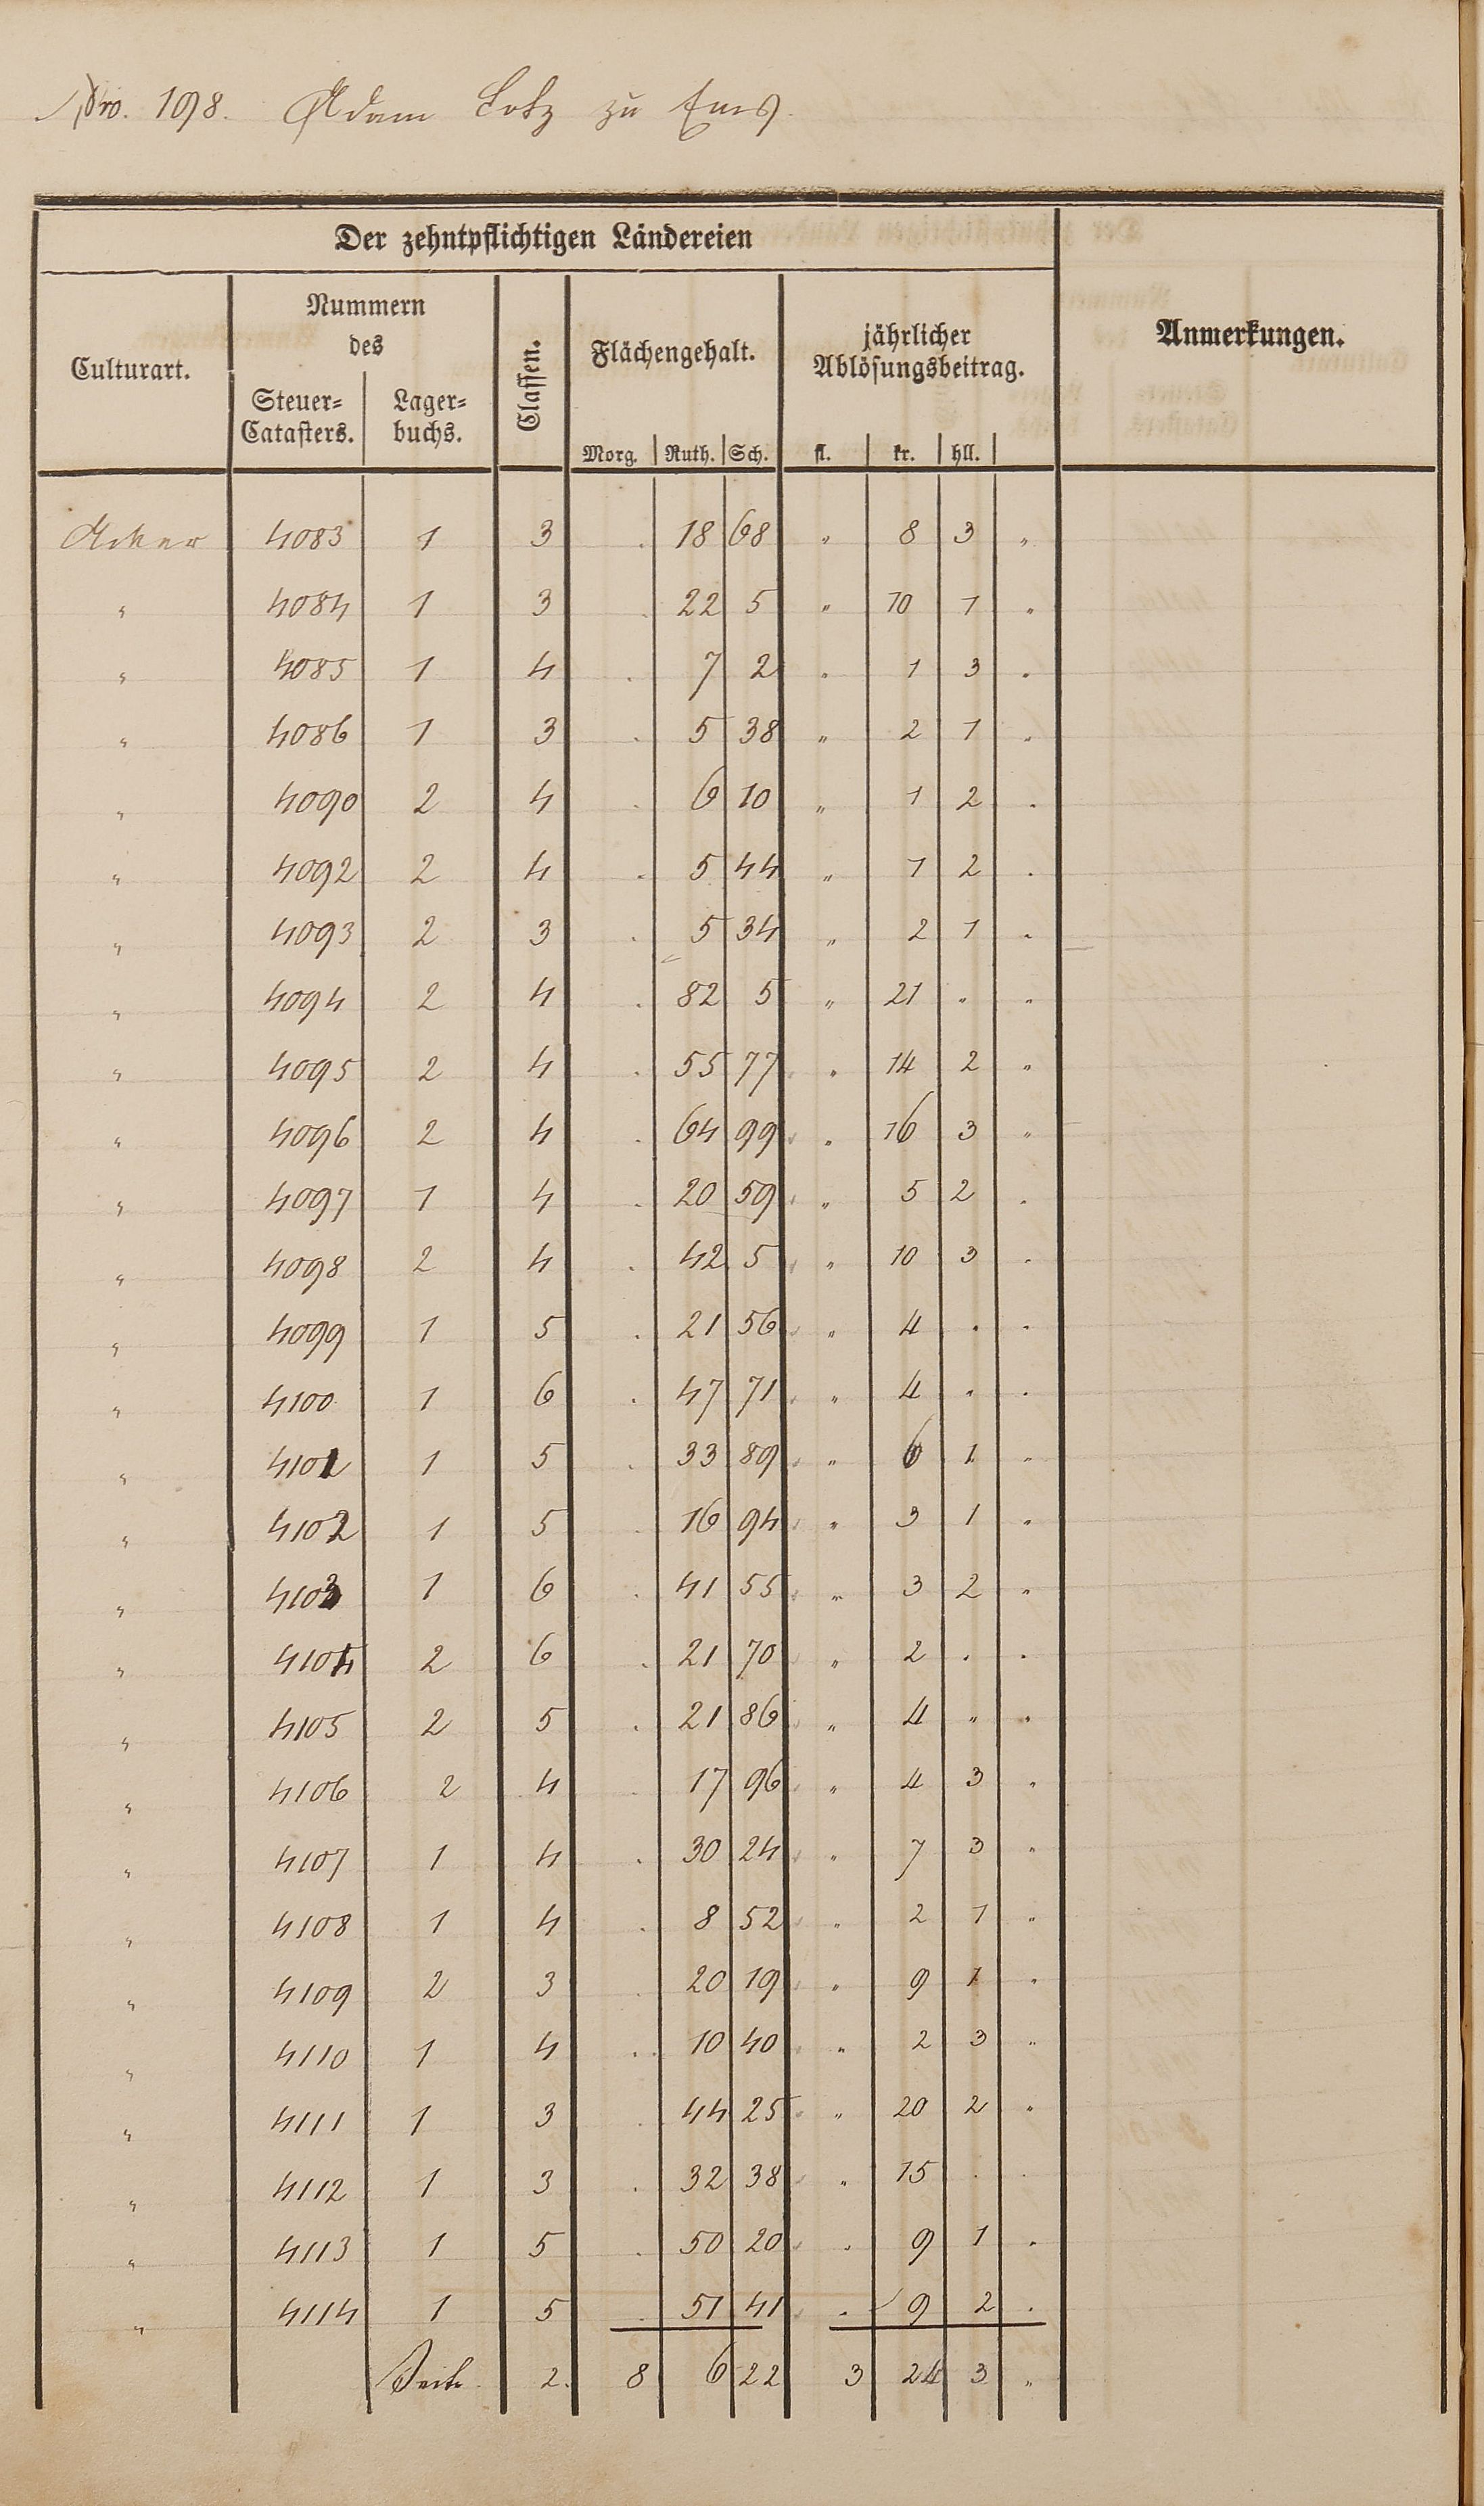 Nro. 198. Adam Lotz zu Ems.
Der zehntpflichtigen Ländereien
Culturart. Nummern des Steuer=Catasters. Lager=buchs. Classen. Flächengehalt. Morg. Ruth. Sch. jährlicher Ablösungsbeitrag. fl. kr. hll. Anmerkungen.
Acker 4083 1 3 . 18 68 " 8 3 "
" 4084 1 3 . 22 5 " 10 1 "
" 4085 1 4 . 7 2 " 1 3 "
" 4086 1 3 . 5 38 " 2 1 "
" 4090 2 4 . 6 10 " 1 2 .
" 4092 2 4 . 5 44 " 1 2 .
" 4093 2 3 . 5 34 " 2 1 "
" 4094 2 4 . 82 5 " 21 " "
" 4095 2 4 . 55 77 " 14 2 "
" 4096 2 4 . 64 99 " 16 3 "
" 4097 1 4 . 20 59 " 5 2 .
" 4098 2 4 . 42 5 " 10 3 .
" 4099 1 5 . 21 56 " 4 . .
" 4100 1 6 . 47 71 " 4 " .
" 4101 1 5 . 33 89 " 6 1 "
" 4102 1 5 . 16 94 " 3 1 "
" 4103 1 6 . 41 55 " 3 2 "
" 4104 2 6 . 21 70 " 2 . .
" 4105 2 5 . 21 86 " 4 " "
" 4106 2 4 . 17 96 " 4 3 "
" 4107 1 4 . 30 24 " 7 3 "
" 4108 1 4 . 8 52 " 2 1 "
" 4109 2 3 . 20 19 " 9 1 "
" 4110 1 4 . 10 40 " 2 3 "
" 4111 1 3 . 44 25 " 20 2 "
" 4112 1 3 . 32 38 " 15 . .
" 4113 1 5 . 50 20 " 9 1 "
" 4114 1 5 . 51 41 . 9 2 .
Seite 2. 8 6 22 3 24 3 "